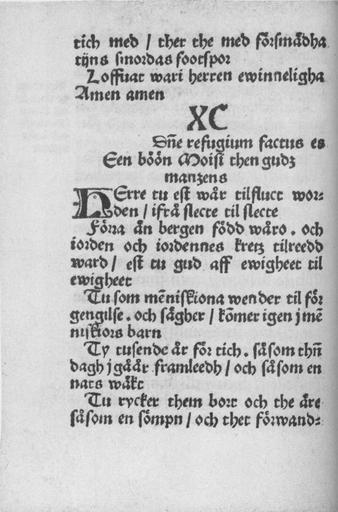 tich med / ther the med försmädha
tijns smordas footspor
Loffuat wari herren ewinneligha
Amen amen
XC
Dñe refugium factus es
Een böön Moisi then gudz
manzens
HErre tu est wår tilfluct wor-
den / ifrå slecte til slecte
Förra än bergen född wåro . och
iorden och iordennes kretz tilreedd
ward / est tu gud aff ewigheet til
ewigheet
Tu som mēniskiona wender til för
gengilse . och sägher / kōmer igen j mē
niskiors barn
Ty tusende år för tich . såsom thñ
dagh j gåår framleedh / och såsom en
nats wäkt
Tu rycker them bort och the äre
såsom en sömpn / och thet förwand-